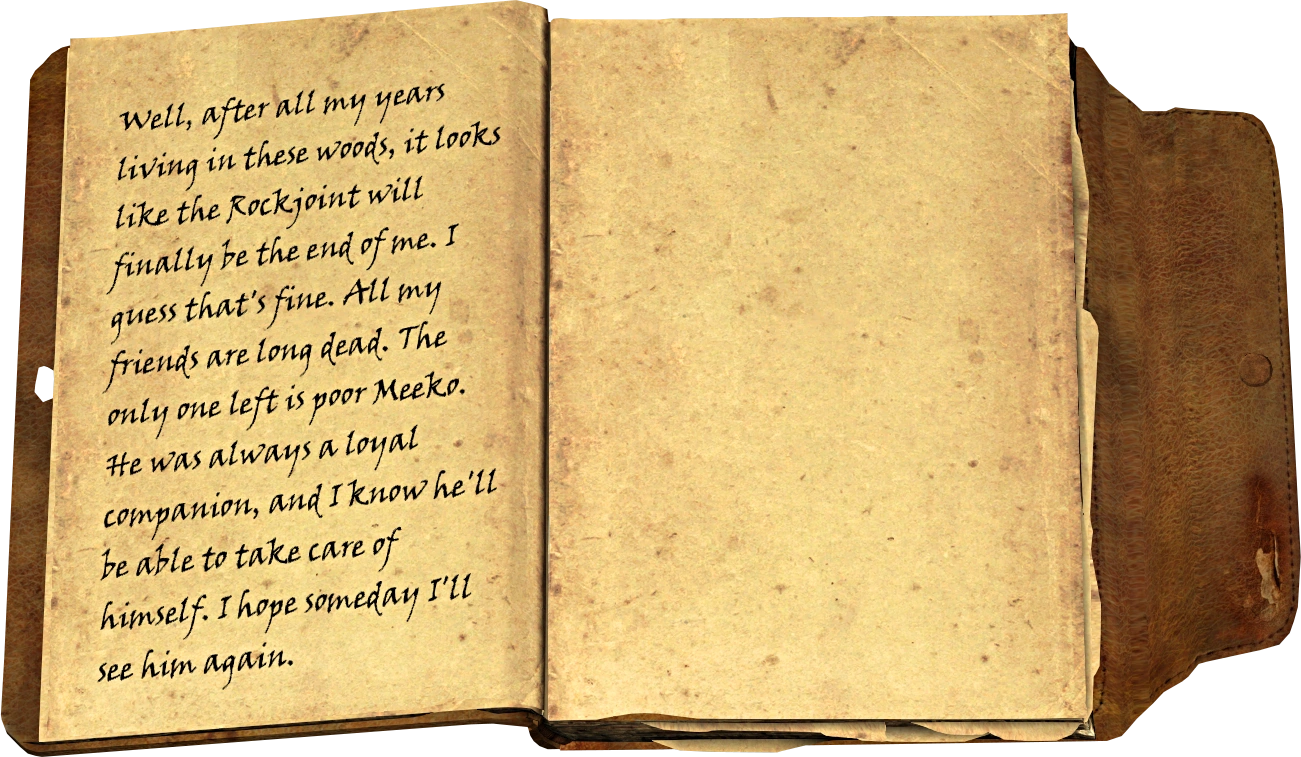 Well, after all my years
living in these woods, it looks
like the Rockjoint will
finally be the end of me. I
guess that's fine. All my
friends are long dead. The
only one left is poor Meeko.
He was always a loyal
companion, and I know he'll
be able to take care of
himself. I hope someday I'll
see him again.